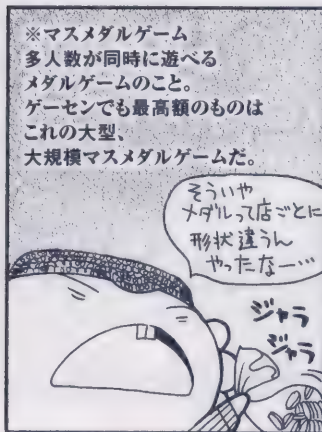 ※マスメダルゲーム
多人数が同時に遊べる
メダルゲームのこと。
ゲーセンでも最高額のものは
これの大型、
大規模マスメダルゲームだ。
そういや
メダルって店ごとに
形状違うん
やったなー…
ジャラ
ジャラ